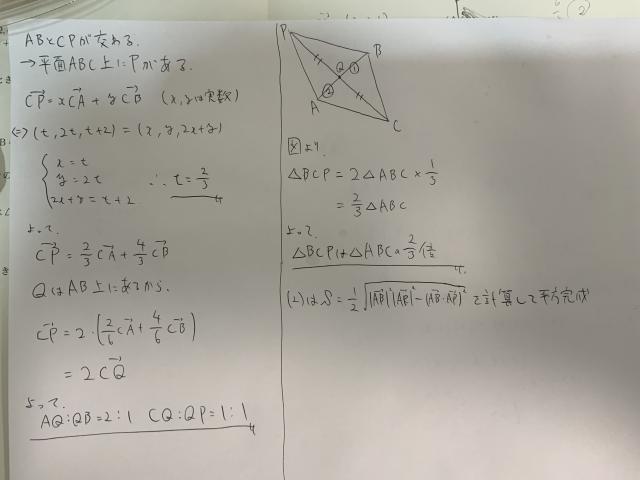 ABとCPが交わる.
→平面ABC上にPがある.
CP = xCA + yCB (x,yは実数)
⇔ (t, 2t, t+2) = (x, y, 2x+y)
x = t
y = 2t
2x+y = t+2
∴ t = 2/3
よって
CP = 2/3 CA + 4/3 CB
QはAB上にあるから.
CP = 2・(2/6 CA + 4/6 CB)
= 2CQ
よって.
AQ:QB=2:1 CQ:QP=1:1
P
B
Q
①
A
②
C
図より
△BCP = 2△ABC × 1/3
= 2/3 △ABC
よって.
△BCPは△ABCの2/3倍
(2)は S = 1/2 √|AB|²|AP|² - (AB・AP)² で計算して平方完成